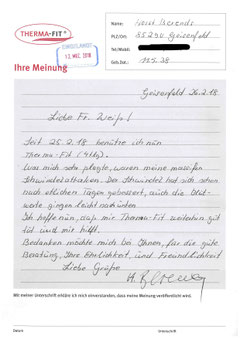 THERMA-FIT®
Name: Horst Berends
PLZ/Ort: 85290 Geisenfeld
Tel/Mobil:
Geb.Dat.: 11.5.38
12. MRZ. 2018
Ihre Meinung
Geisenfeld 26.2.18
Liebe Fr. Weiß!
Seit 25.2.18 benütze ich nun
Therma-Fit
Was mich sehr plagte, waren meine massiven
Schwindelattacken. Der Schwindel hat sich schon
nach etlichen Tagen gebessert, auch die Blut-
werte gingen leicht nach unten
Ich hoffe nun, daß mir Therma-Fit weiterhin gut
tut und mir hilft.
Bedanken möchte mich bei Ihnen, für die gute
Beratung, Ihre Ehrlichkeit, und Freundlichkeit
Liebe Grüße
Mit meiner Unterschrift erkläre ich mich einverstanden, dass meine Meinung veröffentlicht wird.
Datum Unterschrift